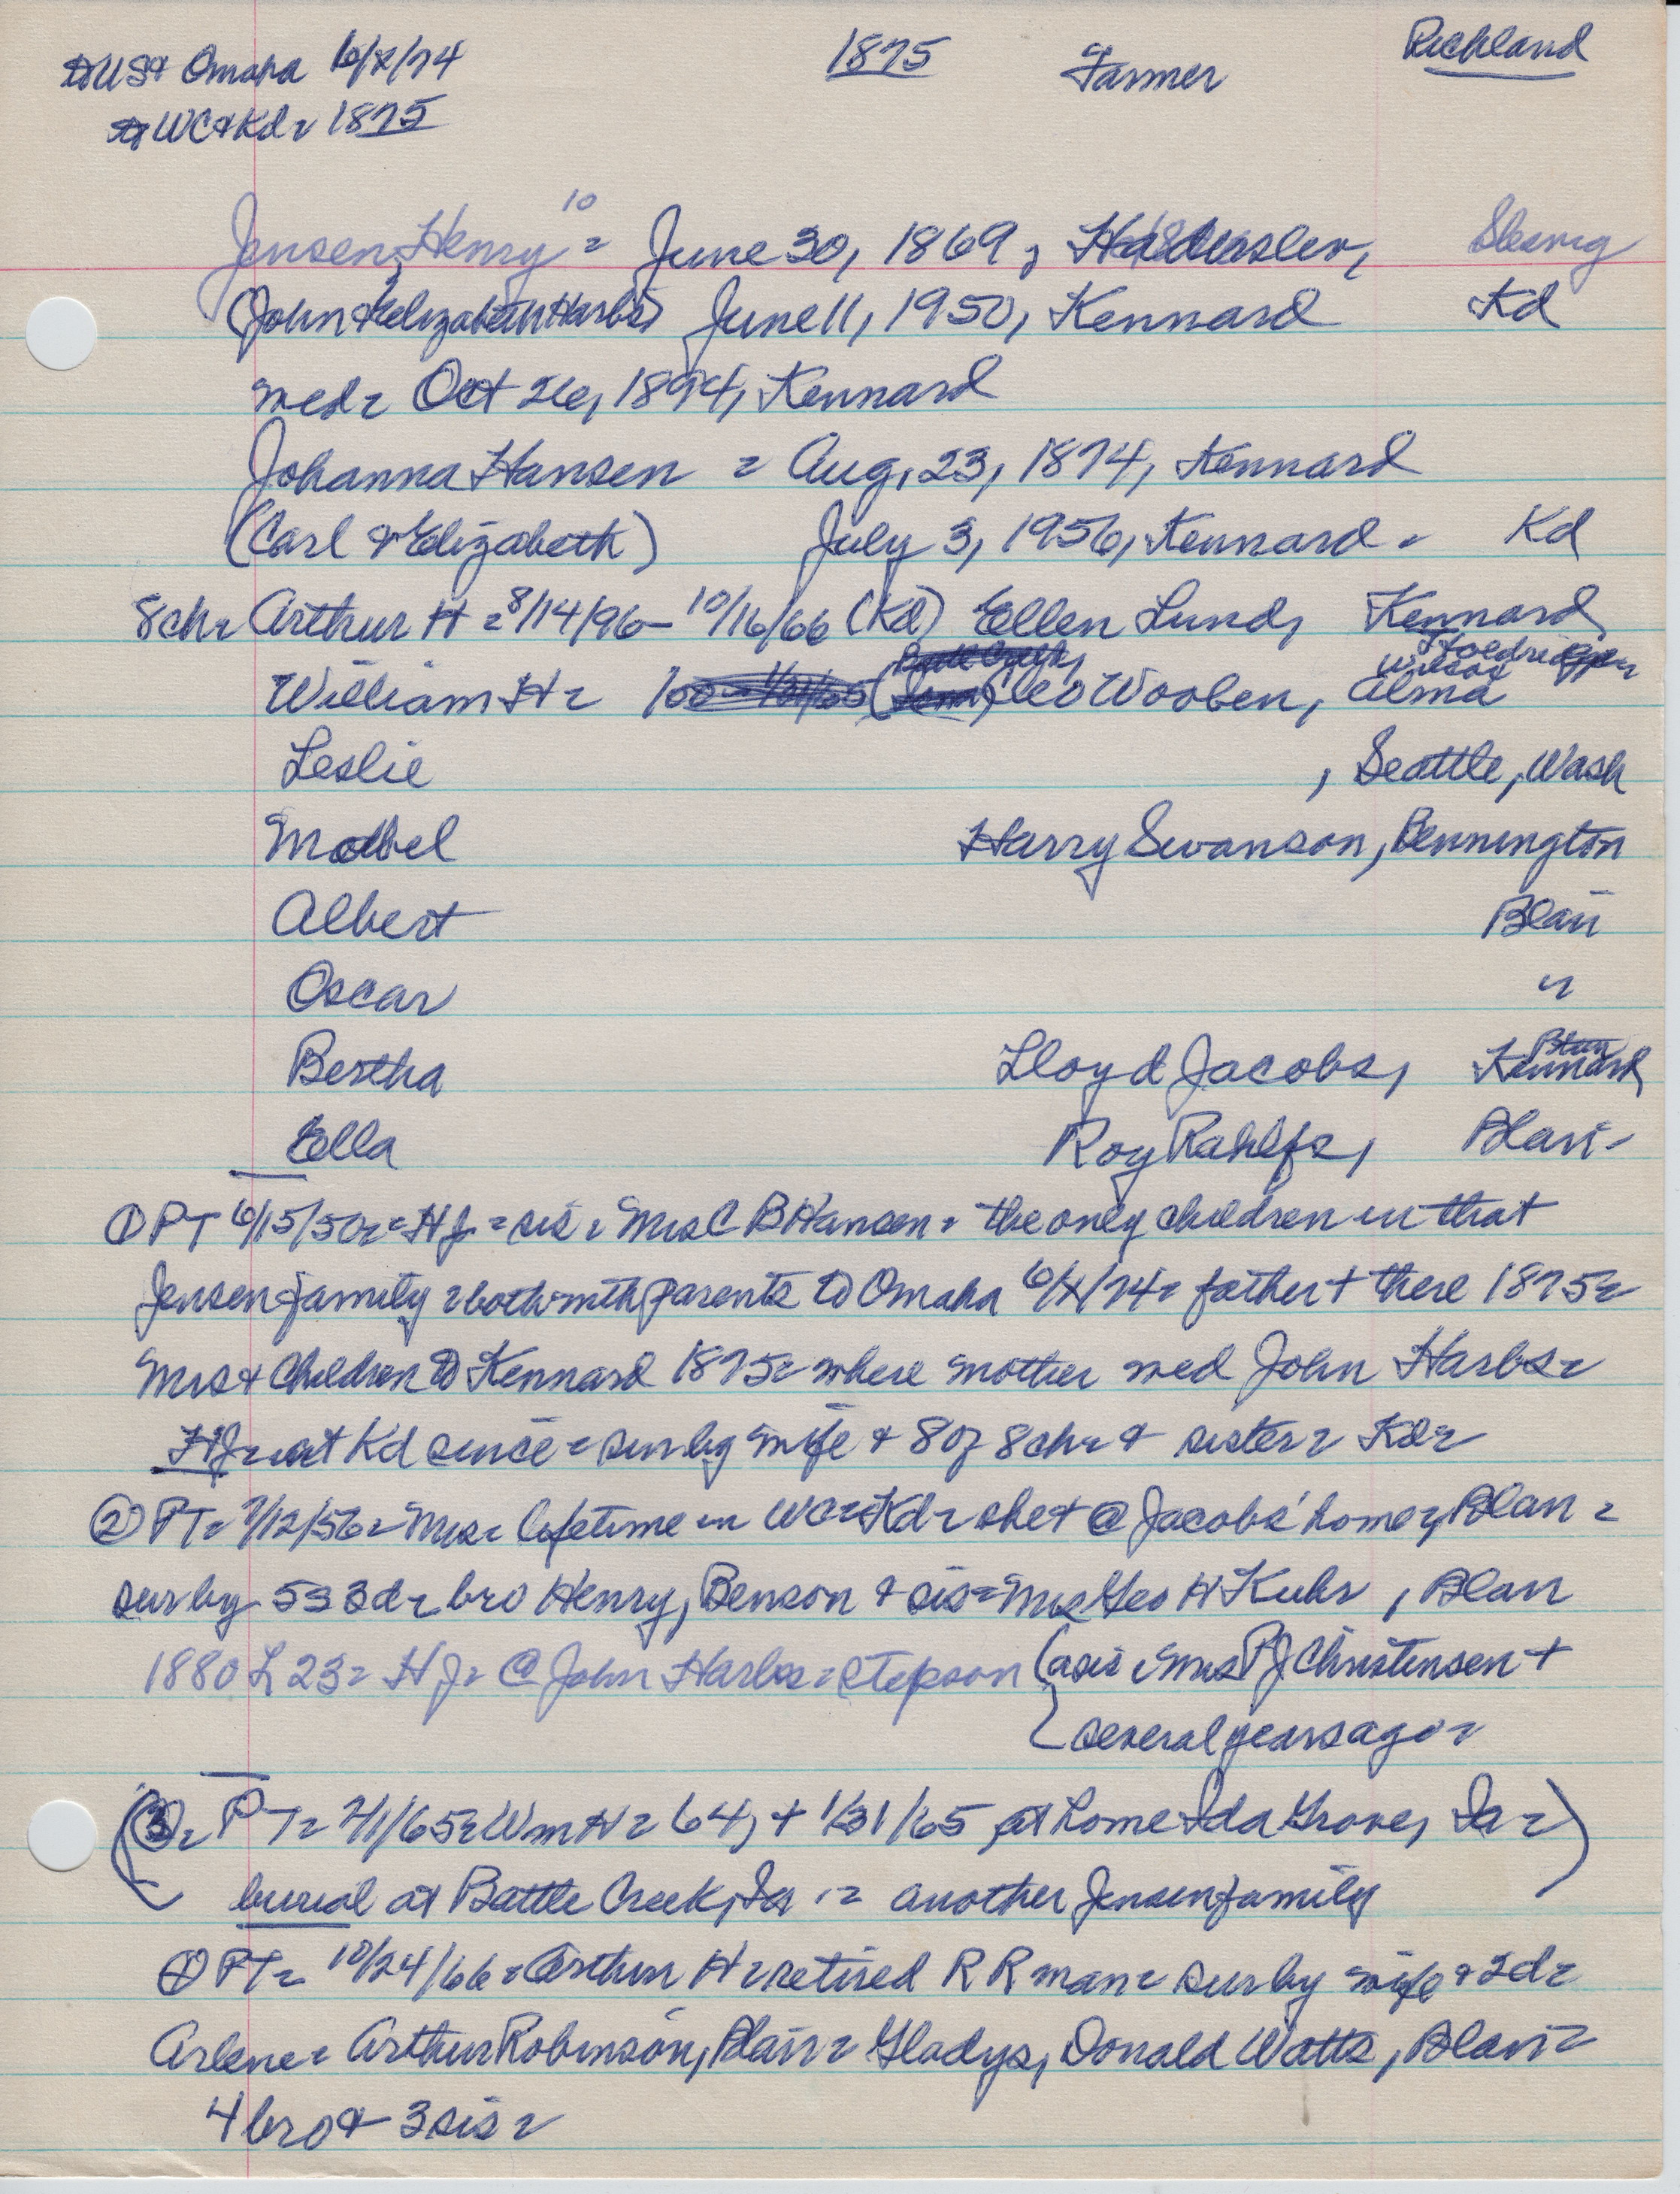 to US & Omaha 6/x/74 1875 Farmer Richland
to WC & Kd = 1875
10
Jensen, Henry = June 30, 1869, Haderslev, Slesvig
(John & Elizabeth Harbs) June 11, 1950, Kennard Kd
med = Oct 26, 1894, Kennard
Johanna Hansen = Aug, 23, 1874, Kennard
(Carl & Elizabeth) July 3, 1956, Kennard = Kd
8 ch = Arthur H = 8/14/96 - 10/16/66 (Kd) Ellen Lund, Kennard
Battle Creek, Wilsox Holdridge
William H = Cleo Wooben, Alma
Leslie , Seattle, Wash
Mabel Harry Swanson, Bennington
Albert Blair
Oscar "
Blair
Bertha Lloyd Jacobs, Kennard
Ella Roy Rahlfs, Blair -
① PT 6/15/50 = HJ = sis = Mrs C B Hansen = the only children in that
Jensen family = both with parents to Omaha 6/x/74 = father + there 1875 =
Mrs & Children to Kennard 1875 = where mother med John Harbs =
HJ = at Kd since = sur by wife & 8 of 8 ch = & sister = Kd =
② PT = 7/12/56 = Mrs = lifetime in WC = Kd = she + @ Jacobs' home, Blair =
sur by 5s 3d = bro Henry, Benson & sis = Mrs Geo H Kuhr , Blair
1880 L 23 = HJ = @ John Harbs = stepson (a sis = Mrs P J Christensen +
several years ago =
(③ = PT = 2/1/65 = Wm H = 64, + 1/31/65 at home Ida Grove, Ia =)
burial at Battle Creek, Ia = another Jensen family
④ PT = 10/24/66 = Arthur H = retired R R man = sur by wife & 2d =
Arlene = Arthur Robinson, Blair = Gladys, Donald Watts, Blair =
4 bro & 3 sis =